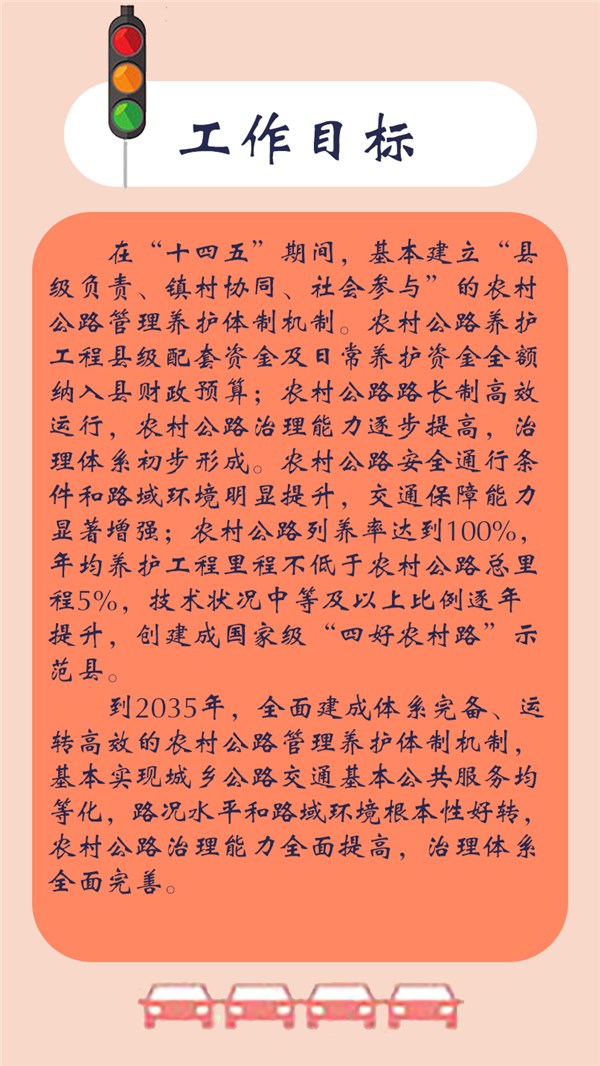 工作目标
在“十四五”期间，基本建立“县
级负责、镇村协同、社会参与”的农村
公路管理养护体制机制。农村公路养护
工程县级配套资金及日常养护资金全额
纳入县财政预算；农村公路路长制高效
运行，农村公路治理能力逐步提高，治
理体系初步形成。农村公路安全通行条
件和路域环境明显提升，交通保障能力
显著增强；农村公路列养率达到100%，
年均养护工程里程不低于农村公路总里
程5%，技术状况中等及以上比例逐年
提升，创建成国家级“四好农村路”示
范县。
到2035年，全面建成体系完备、运
转高效的农村公路管理养护体制机制，
基本实现城乡公路交通基本公共服务均
等化，路况水平和路域环境根本性好转，
农村公路治理能力全面提高，治理体系
全面完善。